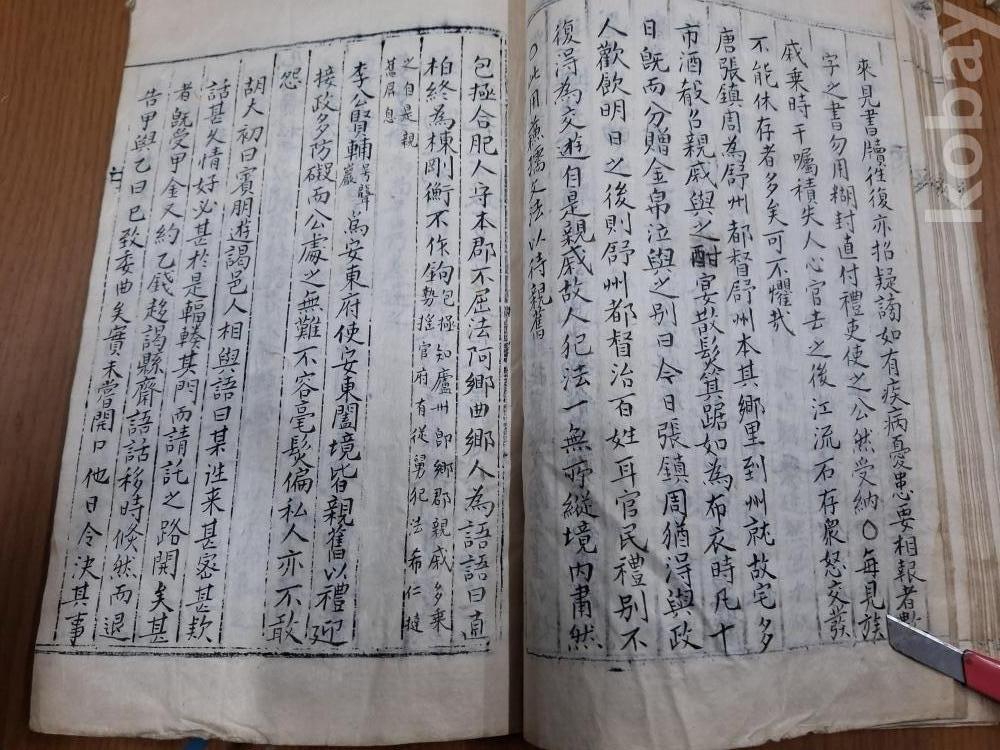 來見書牘往復亦招疑謗如有疾病憂患要相報者數
字之書勿用糊封直付禮吏使之公然受納〇每見族
戚乘時干囑積失人心官去之後江流石存衆怒交蝟
不能休存者多矣可不懼哉
唐張鎮周為舒州都督舒州本其鄉里到州就故宅多
市酒殽召親戚與之酣宴散髮箕踞如為布衣時凡十
日旣而分贈金帛泣與之別曰今日張鎮周猶得與政
人歡飲明日之後則舒州都督治百姓耳官民禮別不
復得為交遊自是親戚故人犯法一無所縱境內肅然
〇此用文法以待親舊
包拯合肥人守本郡不屈法阿鄉曲鄉人為語語曰直
柏終為棟剛衡不作鉤包拯知廬州卽鄉郡親戚多乘
勢搖官府有從舅犯法希仁撻
之自是親
舊屛息
李公賢輔號聾巖為安東府使安東闔境皆親舊以禮迎
接政多防礙而公處之無難不容毫髮偏私人亦不敢
怨
胡大初曰賓朋遊謁邑人相與語曰某往来甚密甚款
話甚久情好必甚於是輻輳其門而請託之路開矣甚
者旣受甲金又約乙錢趍謁縣齋語話移時倏然而退
告甲與乙曰已致委曲矣實未嘗開口他日令決其事
kobay